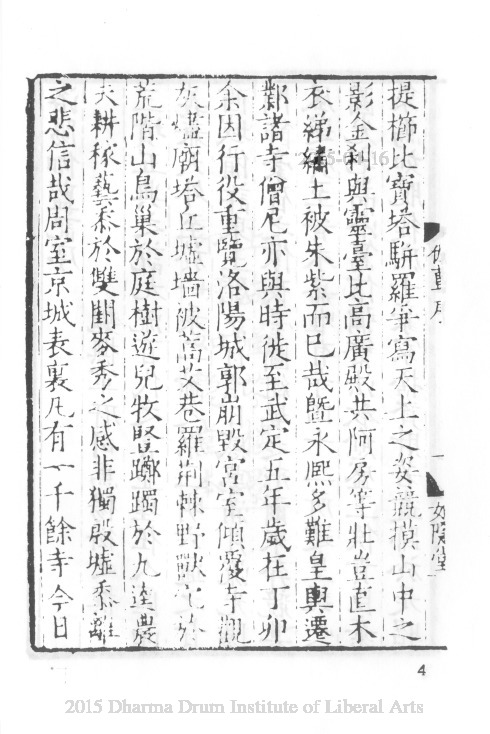 提櫛比寶塔駢羅爭寫天上之姿競摸山中之
影金刹與靈臺比高廣殿共阿房等壯豈直木
衣綈繡土被朱紫而已哉曁永熙多難皇輿遷
鄴諸寺僧尼亦與時徙至武定五年歲在丁卯
余因行役重覽洛陽城郭崩毀宮室傾覆寺觀
灰燼廟塔丘墟墻被蒿艾巷羅荆棘野獸穴於
荒階山鳥巢於庭樹遊兒牧豎躑躅於九逵農
夫耕稼藝黍於雙闕麥秀之感非獨殷墟黍離
之悲信哉周室京城表裏凡有一千餘寺今日
序
一
如隱堂
4
2015 Dharma Drum Institute of Liberal Arts